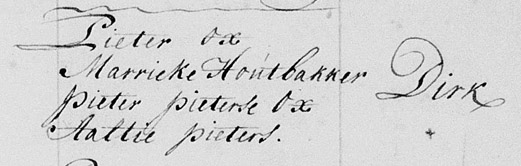 Pieter Ox
Marrieke Houtbakker
pieter pieterse Ox
Aaltie pieters.
Dirk